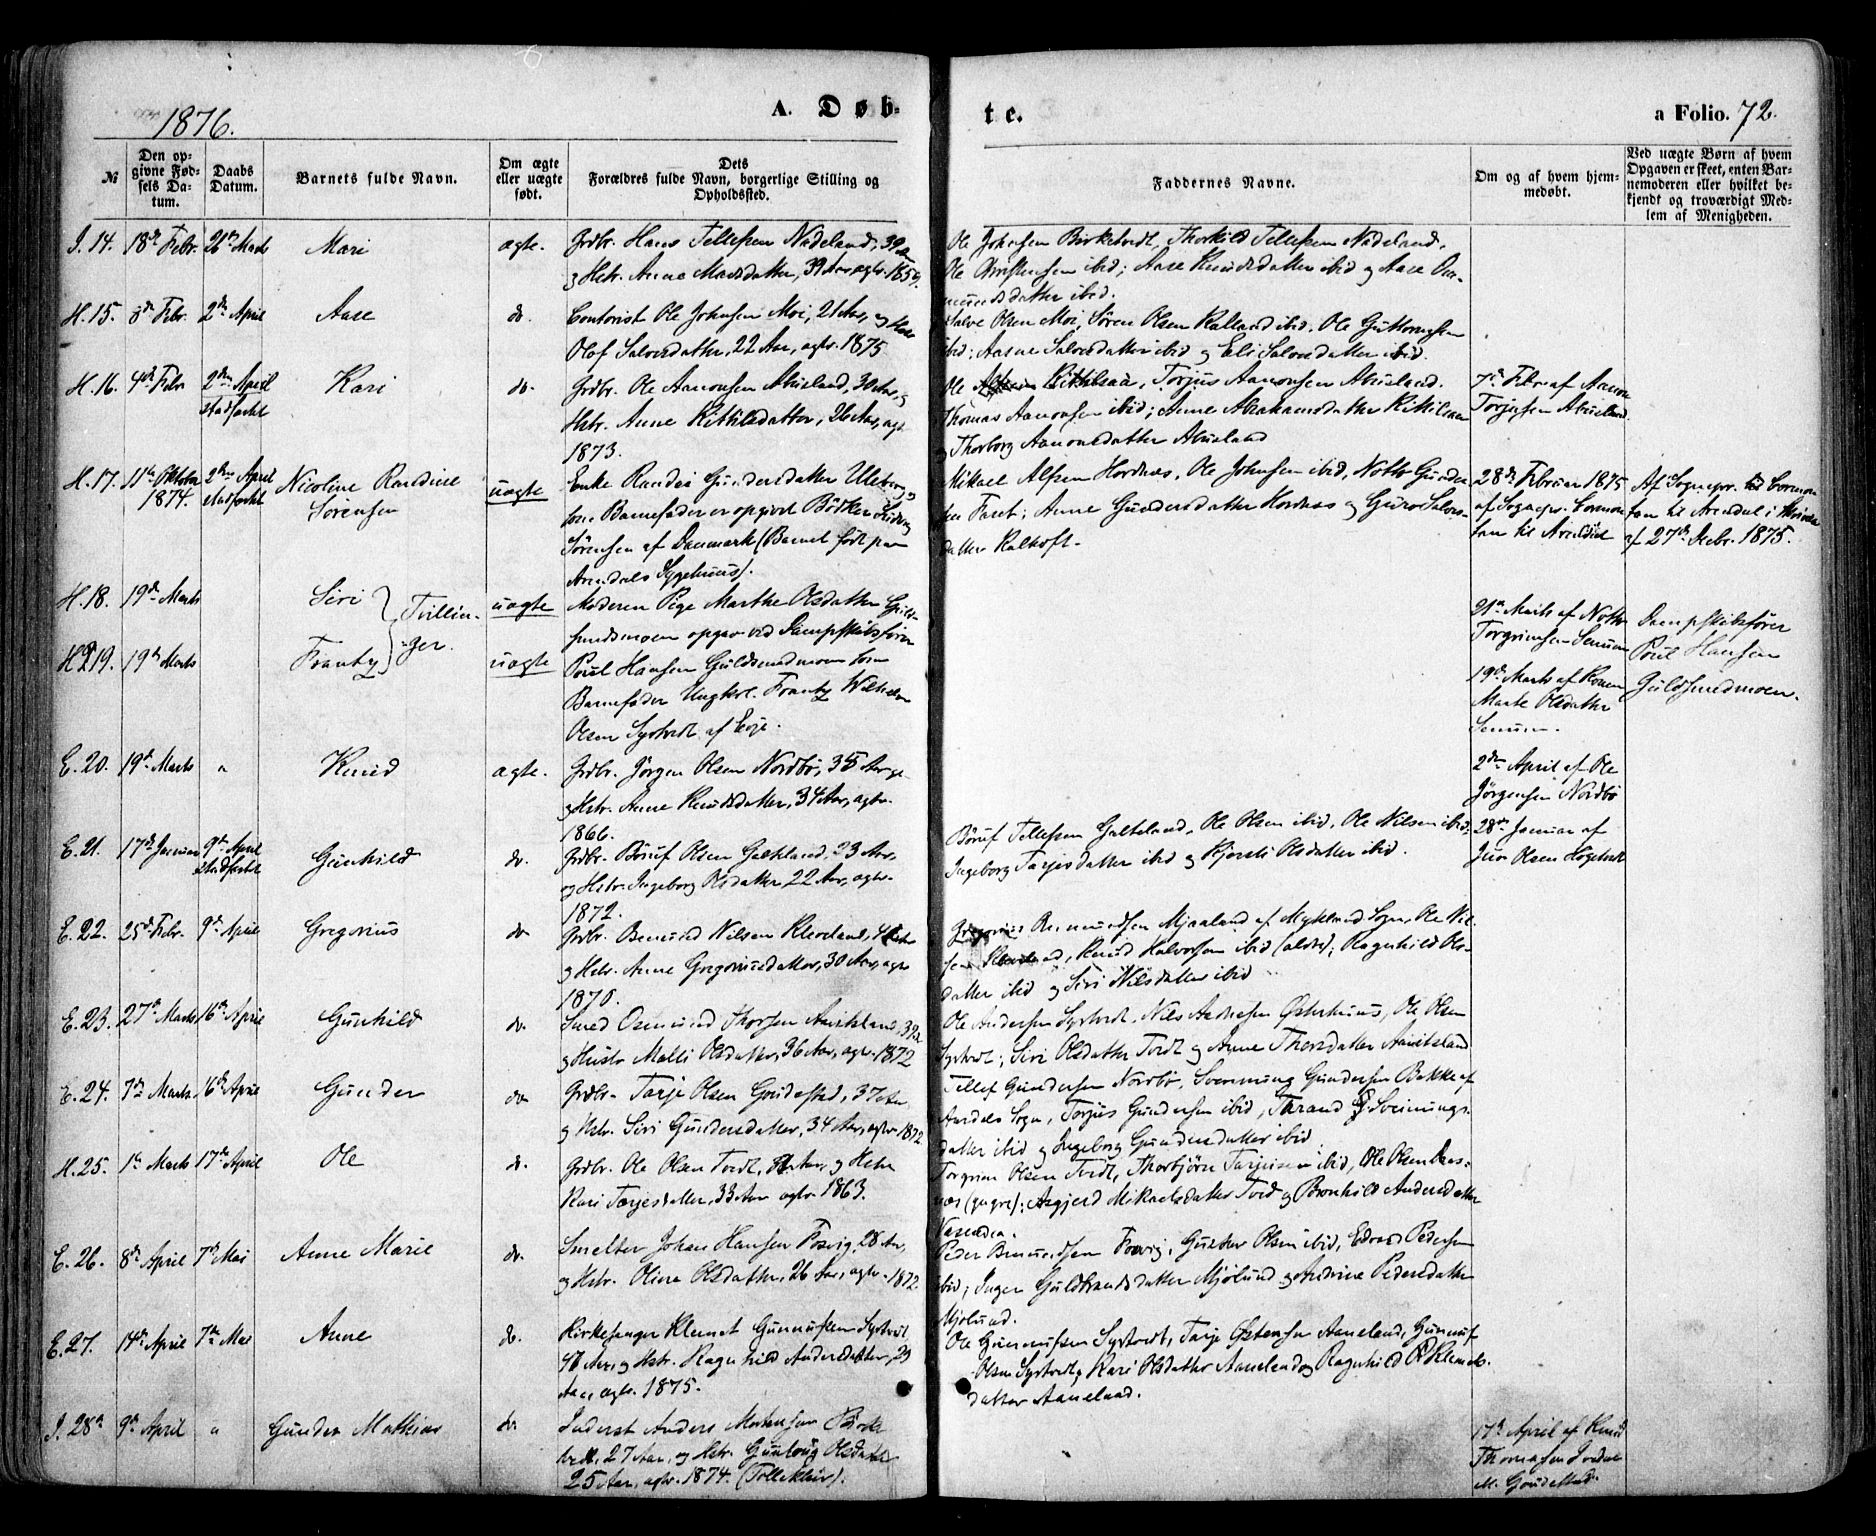 1876.
A. Døb-
te.
a Folio. 72.
№
Den op-
givne Fød-
sels Da-
tum.
Daabs
Datum.
Barnets fulde Navn.
Om ægte
eller uægte
født.
Dets
Forældres fulde Navn, borgerlige Stilling og
Opholdssted.
Faddernes Navne.
Om og af hvem hjem-
medøbt.
Ved uægte Børn af hvem
Opgaven er skeet, enten Bar-
nemoderen eller hvilket be-
kjendt og troværdigt Med-
lem af Menigheden.
I. 14. 18de Febr. 26de Marts Mari ægte. Grdbr. Hans Tellefsen Nadeland, 39
og Hstr. Anne Madsdatter, 39 Aar, egtv. 1859.
Ole Johnsen Birketvedt, Thorkild Tellefsen Nadeland,
Ole Christensen ibid; Aase Knudsdatter ibid og Aase
mundsdatter ibid.
H. 15. 8de Febr. 2den April Aase do. Contorist Ole Johnsen Moi, 21 Aar, og
Olof Salvesdatter, 22 Aar, egtv. 1875
Salve Olsen Moi, Søren Olsen Kalland ibid, Ole Guttormsen
ibid; Aasne Salvesdatter ibid og Eli Salvesdatter ibid.
H. 16. 4de Febr 2den April
stadfæstet
Kari do. Grdbr. Ole Aanonsen Abusland, 30 Aar, og
Hstr. Anne Kittilsdatter, 26 Aar, egtv.
1873.
Ole Kittilsaa, Torjus Aanonsen Abusland.
Thomas Aanonsen ibid; Anne Abrahamsdatter Kittilsaa
og Thorborg Aanonsdatter Abusland
7de Febr af Aanon
Torjusen Abusland.
H. 17. 11te Oktober
1874. 2den April
stadfæstet
Nicoline Randine
Sørensen
uægte
Enke Randi Gundersdatter Uleberg,
som Barnefader er opgivet Bødker
Sørensen af Danmark (Barnet født paa
Arendals Sygehuus).
Mikael Alfsen Hordnes, Ole Johnsen ibid, Notto Gunder
sen Faret; Anne Gundersdatter Hordnes og Guro Salves-
datter Kalhoft.
28de Februar 1875
af Sognepr.
til Arendal
Af Sognepr.
til Arendal i
af 27de Decbr. 1875.
H. 18. 19de Marts Siri
Tvillin-
ger.
uægte Moderen Pige Marthe Olsdatter Guld-
smedmoen opgav ved Dampskibsfører
21de Marts af Notto
Torgrimsen Senum
Dampskibsfører
Poul Hansen
Guldsmedmoen.
H. 19. 19de Marts Frantz uægte Poul Hansen Guldsmedmoen som
Barnefader Ungkrl. Frantz Wilhelm
Olsen Syrtveit af Evje.
19de Marts af Konen
Marte Olsdatter
Senum.
E. 20. 19de Marts " Knud ægte. Grdbr. Jørgen Olsen Nordbø, 35 Aar
og Hstr. Anne Knudsdatter, 34 Aar, egtv.
1866.
2den April af Ole
Jørgensen Nordbø
E. 21. 17de Januar 9de April
stadfæstet
Gunhild do. Grdbr. Børuf Olsen Galteland, 23 Aar,
og Hstr. Ingeborg Olsdatter, 22 Aar, egtv.
1872.
Børuf Tellefsen Galteland, Ole Olsen ibid, Ole Nilsen ibid
Ingeborg Tarjesdatter ibid og Kjersti Olsdatter ibid.
28de Januar af
Olsen Høgetveit
E. 22. 25de Febr. 9de April Gregorius do. Grdbr. Bemund Nilsen Kleveland,
og Hstr. Anne Gregoriusdatter, 30 Aar, egtv.
1870.
Gregorius Bemundsen Mjaaland af Mykland Sogn, Ole Nil-
sen, Knud Halvorsen ibid (ældre); Ragnhild Ols-
datter ibid og Siri Nilsdatter ibid
E. 23. 27de Marts 16de April Gunhild do. Smed Osmund Thorsen Aavitsland, 39
og Hustr. Malli Olsdatter, 36 Aar, egtv. 1872
Ole Andersen Syrtveit, Nils Østerhuus, Ole Olsen
Syrtveit; Siri Olsdatter Tveit og Anne Thorsdatter Aavitsland
E. 24. 7de Marts 16de April Gunder do. Grdbr. Tarje Olsen Goudestad, 37 Aar
og Hstr. Siri Gundersdatter, 34 Aar, egtv. 1872
Tellef Gundersen Nordbø, Svennung Gundersen Bakke af
Aardals Sogn, Torjus Gundersen ibid, Tarand Sveinungs-
datter ibid og Ingeborg Gundersdatter ibid.
H. 25. 1ste Marts 17de April Ole do. Grdbr. Ole Olsen Tveit, og Hstr
Kari Tarjesdatter, 33 Aar egtv. 1863.
Torgrim Olsen Tveit, Thorbjørn Tarjeisen ibid, Ole Olsen
(yngre); Asgjerd Mikaelsdatter Tveit og Brynhild Andersdatter
E. 26. 8de April 7de Mai Anne Marie do. Smelter Johan Hansen Fosvig, 28 Aar,
og Hstr. Oline Olsdatter, 26 Aar, egtv. 1872
Peder Bemundsen Fosvig, Gustav Olsen ibid, Edvard Pedersen
ibid; Inger Guldbrandsdatter Mjolund og Andrine Pedersdatter
Mjolund.
E. 27. 14de April 7de Mai Anne do. Kirkesanger Klemet Gunnufsen Syrtveit,
47 Aar, og Hstr. Ragnhild Andersdatter, 29
Aar, egtv. 1875.
Ole Gunnufsen Syrtveit, Tarje Østensen Aaneland, Gunnuf
Olsen Syrtveit, Kari Olsdatter Aaneland og Ragnhild Klemets-
datter Aaneland.
I. 28de 9de April " Gunder Mathias do. Inderst Anders Mortensen Birke
tveit, 27 Aar, og Hstr. Gunlaug Olsdatter
25 Aar, egtv. 1874. (Tellekhus).
17de April af Knud
Thomasen
M. Goudestad.